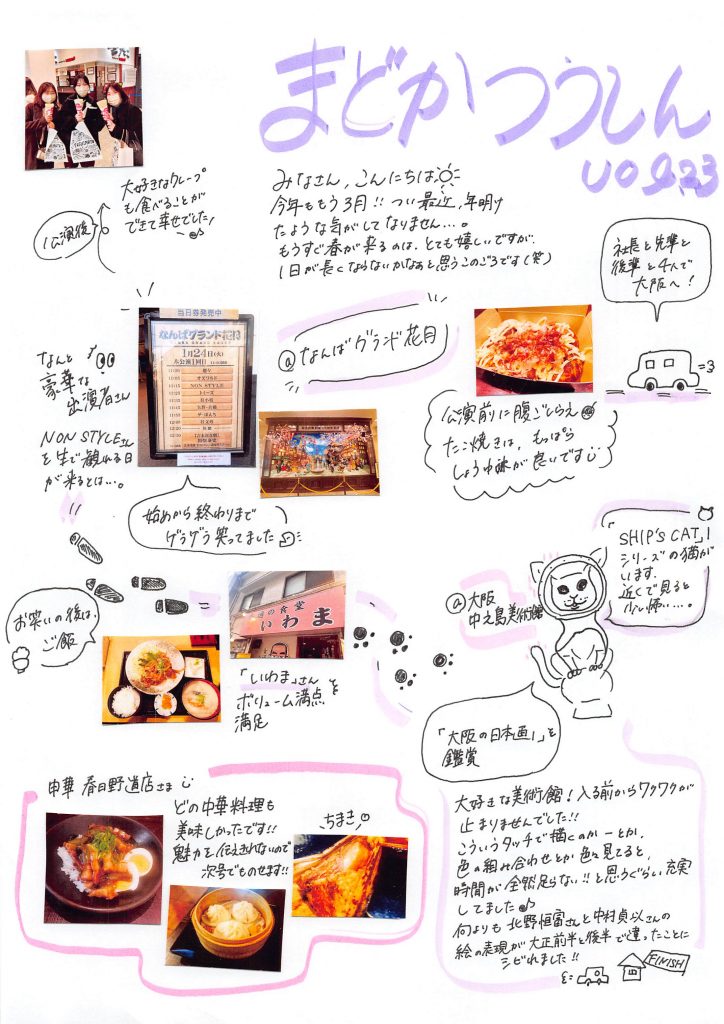 まどかつうしん
VOl.23
みなさん、こんにちは
今年ももう3月!! つい最近、年明け
たような気がしてなりません…。
もうすぐ春が来るのは、とても嬉しいですが、
1日が長くならないかなぁと思うこのごろです(笑)
公演後
大好きなクレープ
も食べることが
できて幸せでした!
社長と先輩と
後輩と4人で
大阪へ!
@なんばグランド花月
当日券発売中
なんばグランド花月
1月24日(火)
本公演1回目
NON STYLE
なんと
豪華な
出演者さん
NON STYLEさん
を生で観れる日
が来るとは…。
公演前に腹ごしらえ
たこ焼きは、もっぱら
しょうゆ味が良いです
始めから終わりまで
ゲラゲラ笑ってました
お笑いの後は、
ご飯
の食堂
いわま
「いわま」さん
ボリューム満点を
満足
@大阪
中之島美術館
「SHIP'S CAT」
シリーズの猫が
います。
近くで見ると
少し怖い…。
「大阪の日本画」を
鑑賞
中華 春日野道店さま
どの中華料理も
美味しかったです!!
魅力を伝えきれないので
次号でものせます!!
ちまき
大好きな美術館! 入る前からワクワクが
止まりませんでした!!
こういうタッチで描くのかーとか、
色の組み合わせとか色々見てると、
時間が全然足らない!!と思うぐらい充実
してました
何よりも北野恒富さんと中村貞以さんの
絵の表現が大正前半と後半で違ったことに
シビれました!!
FINISH